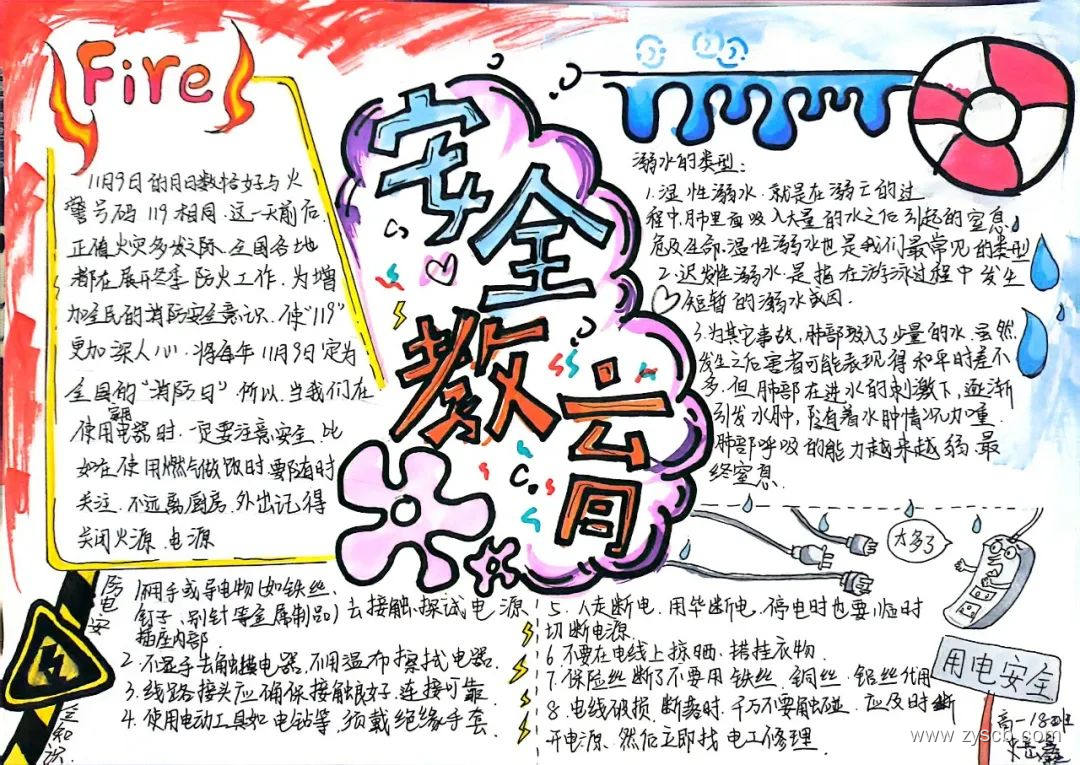 Fire
11月9日的月日数恰好与火
警号码119相同.这一天前后.
正值火灾多发之际.全国各地
都在展开冬季防火工作.为增
加全民的消防安全意识.使"119"
更加深入人心.将每年11月9日定为
全国的"消防日".所以.当我们在
使用家用电器时.一定要注意安全.比
如在使用燃气做饭时.要随时
关注.不远离厨房.外出记得
关闭火源.电源
安全教育
溺水的类型:
1.湿性溺水.就是在溺亡的过
程中.肺里面吸入大量的水之后引起的窒息.
危及生命.湿性溺水也是我们最常见的类型
2.迟发性溺水.是指在游泳过程中发生
短暂的溺水或因
3.为其它事故,肺部吸入了少量的水.虽然
发生之后患者可能表现得和平时差不
多.但肺部在进水的刺激下,逐渐
引发水肿,随着水肿情况加重.
肺部呼吸的能力越来越弱.最
终窒息.
太多了
防电安全知识.
1.用手或导电物(如铁丝、
钉子、别针等金属制品)去接触、探试电源
插座内部
2.不湿手去触摸电器.不用湿布擦拭电器.
3.线路接头应确保接触良好.连接可靠
4.使用电动工具如电钻等.须戴绝缘手套.
5.人走断电.用毕断电.停电时也要临时
切断电源.
6.不要在电线上晾晒、搭挂衣物.
7.保险丝断了不要用铁丝、铜丝、铝丝代用
8.电线破损.断落时.千万不要触碰.应及时断
开电源.然后立即找电工修理.
用电安全
高一18班
www.zyscb.com